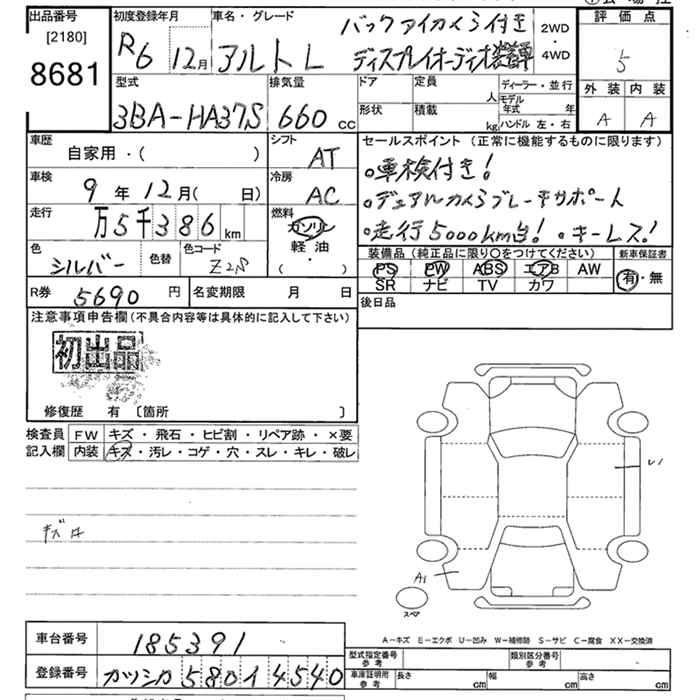 出品番号
[2180]
8681
初度登録年月
R6 12月
車名・グレード
アルトL
バックアイカメラ付き
ディスプレイオーディオ装着車
2WD
・
4WD
評価点
5
外装 内装
A A
型式
3BA-HA37S
排気量
660 cc
ドア
定員
人
形状
積載
kg
ディーラー・並行
モデル年式 年
ハンドル 左・右
車歴
自家用・( )
シフト
AT
車検
9年12月( 日)
冷房
AC
走行
万5千386km
燃料
ガソリン
軽油
・
( )
色
シルバー
色替
色コード
Z2S
R券
5690円
名変期限 月 日
セールスポイント (正常に機能するものに限ります)
。車検付き!
。デュアルカメラブレーキサポート
。走行5000km台! 。キーレス!
装備品(純正品に限り○をつけてください)
PS PW ABS エアB AW
SR ナビ TV カワ
新車保証書
有・無
後日品
注意事項申告欄(不具合内容等は具体的に記入して下さい)
初出品
修復歴 有 〔箇所 〕
検査員記入欄
FW キズ・飛石・ヒビ割・リペア跡・×要
内装 キズ・汚レ・コゲ・穴・スレ・キレ・破レ
A1
スペア
A-キズ E-エクボ U-凹み W-補修跡 S-サビ C-腐食 XX-交換済
車台番号
185391
登録番号
カツシカ 580 イ 4540
型式指定番号
参考
類別区分番号
参考
車庫証明用
参考
長さ cm
幅 cm
高さ cm